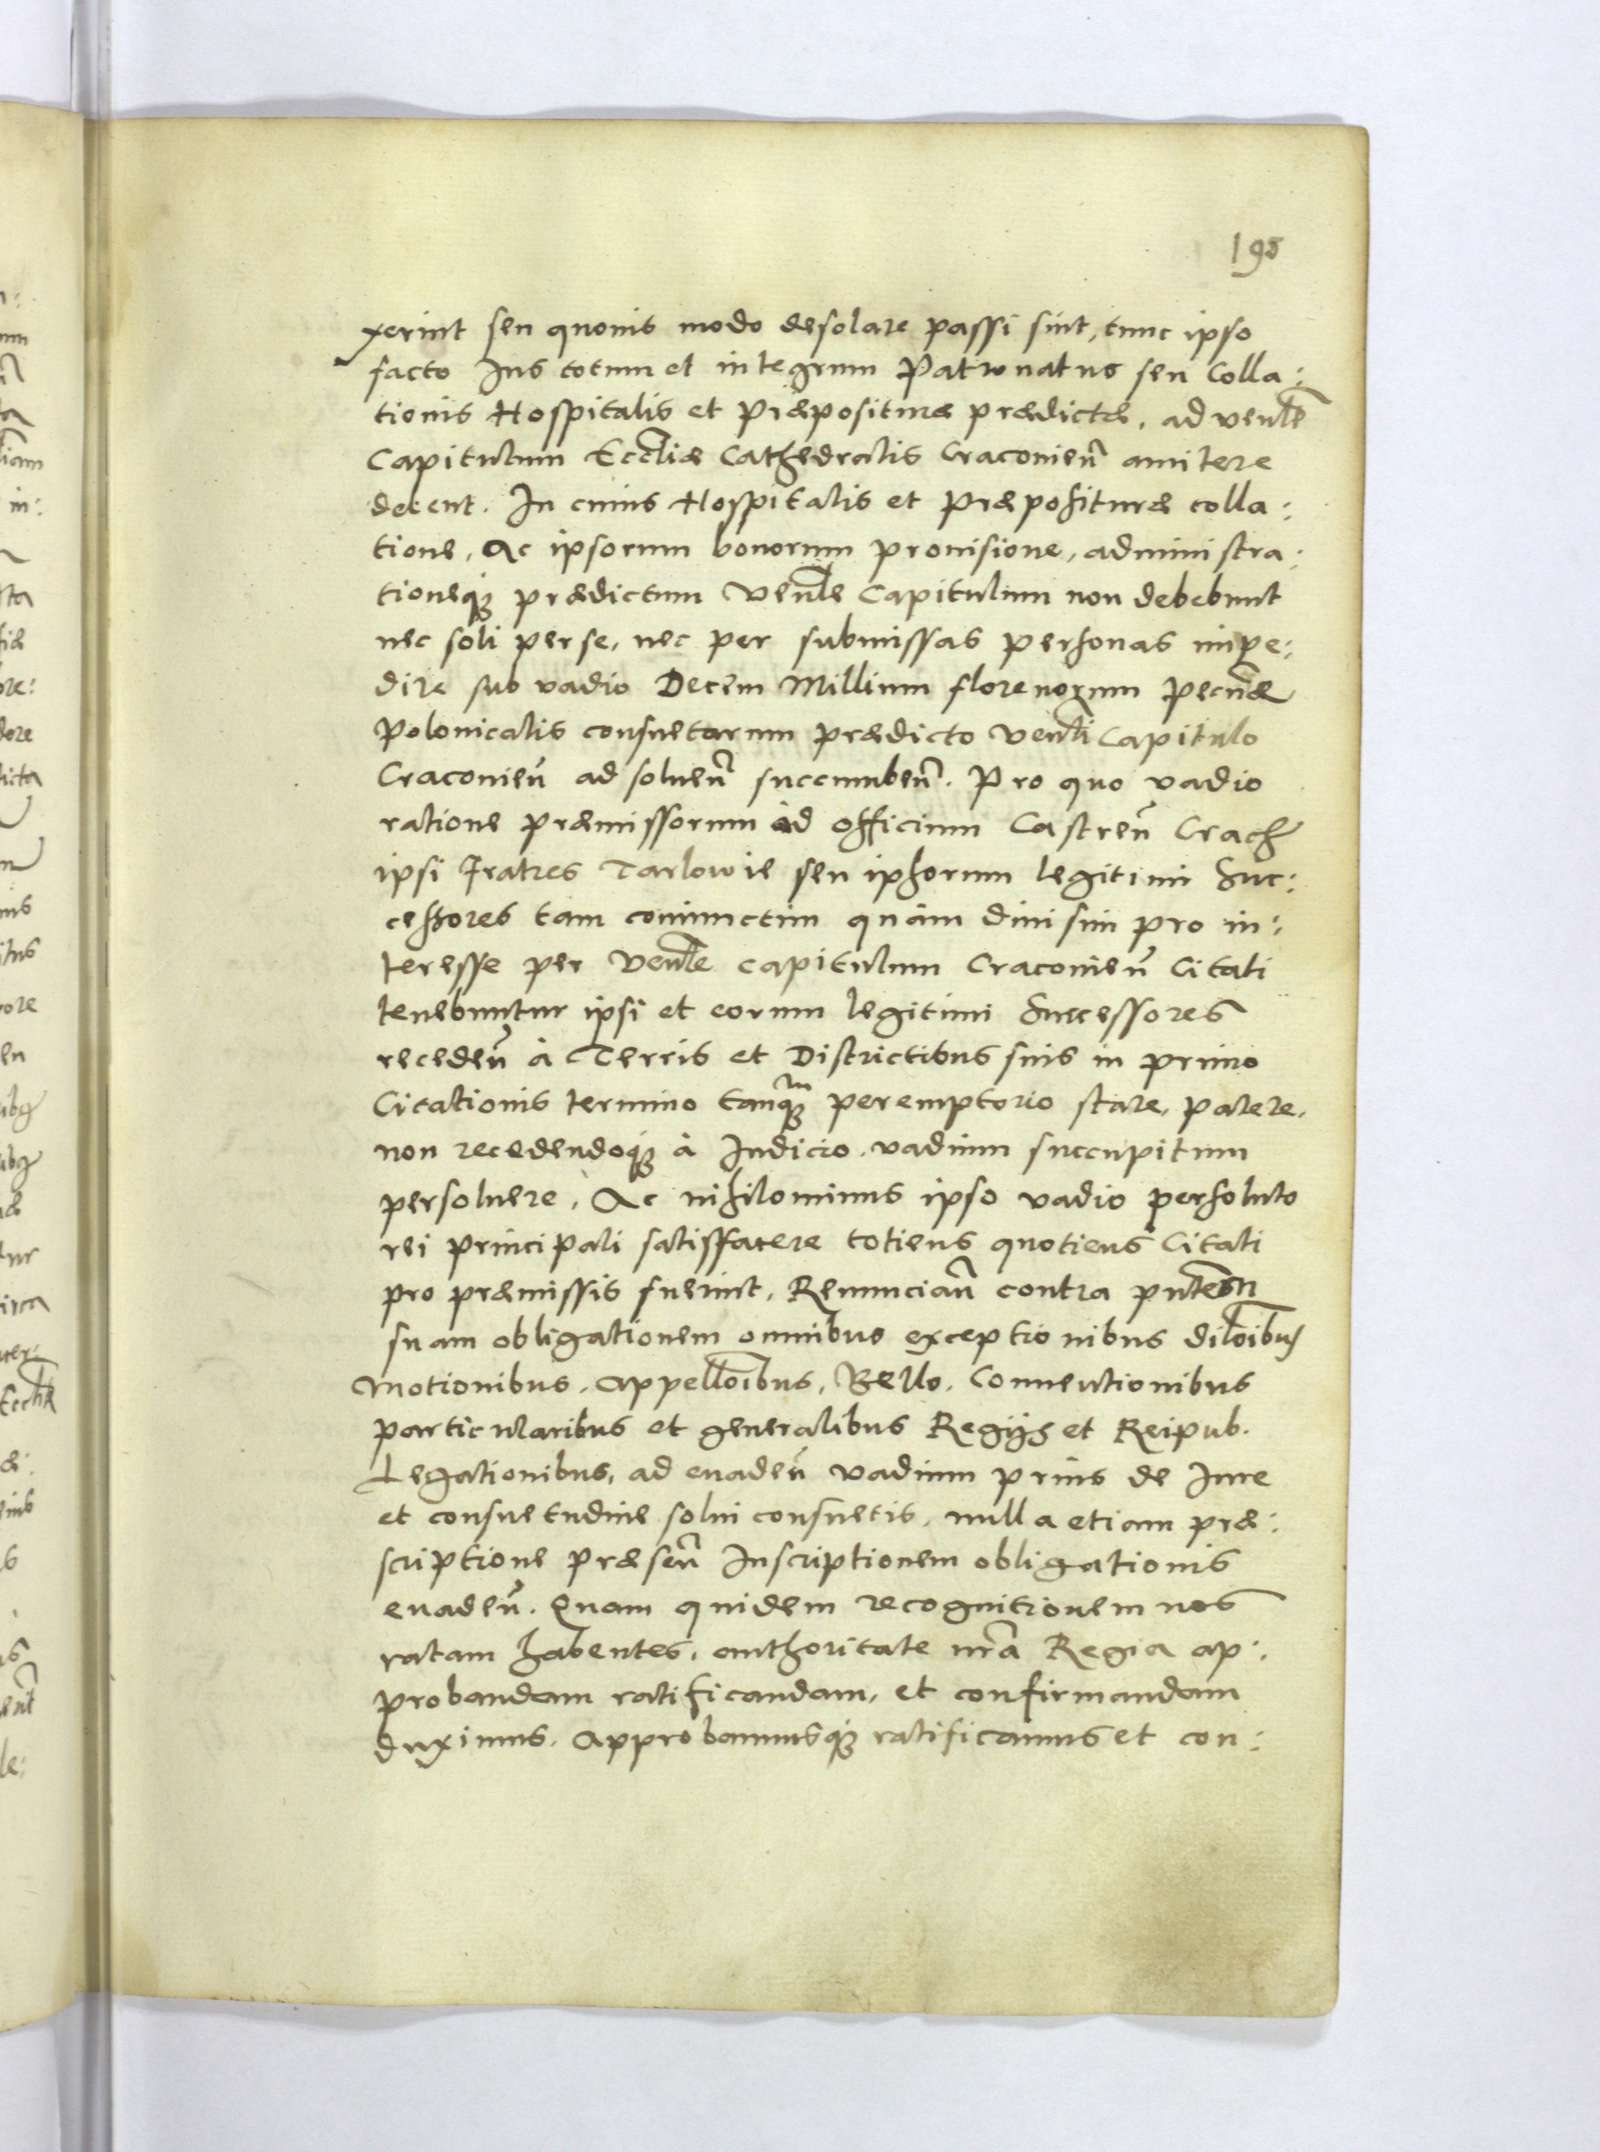 198
xerint seu quouis modo desolare passi sint, tunc ipso
facto Ius totum et integrum Patronatus seu Colla:
tionis Hospitalis et Præpositurae prædictæ, ad venle
Capitulum Eccliæ Cathedralis Cracouien amitere
decent. In cuius Hospitalis et Præpositurae colla:
tione, Ac ipsorum bonorum prouisione, administra:
tioneq; prædictum Venle Capitulum non debebunt
nec soli per se, nec per submissas personas impe:
dire sub vadio Decem Millium florenorum pecunæ
Polonicalis consuetarum prædicto Venli Capitulo
Cracouien ad soluen succumben. Pro quo vadio
ratione præmissorum ad officium Castren Crach
ipsi Fratres Tarlowie seu ipsorum legitimi Suc:
cessores tam coniunctim quàm diuisim pro in:
teresse per Venle Capitulum Cracouien Citati
tenebuntur ipsi et eorum legitimi Successores
receden à Terris et Districtibus suis in primo
Citationis termino tanq;m peremptorio stare, parere,
non recedendoq; à Iudicio, vadium succupitum
persoluere, Ac nihilominus ipso vadio persoluto
rei principali satisfacere totiens quotiens Citati
pro præmissis fuerint, Renuncian contra pntem
suam obligationem omnibus exceptionibus diloibus
Motionibus, Appelloibus, Bello, Conuentionibus
particularibus et generalibus Regijs et Reipub.
Legationibus, ad euaden vadium prius de Iure
et consuetudine solui consuetis, nulla etiam præ:
scriptione præsen Inscriptionem obligationis
euaden. Quam quidem recognitionem nos
ratam habentes, authoritate nra Regia ap:
probandam ratificandam, et confirmandam
duximus. Approbamusq; ratificamus et con: